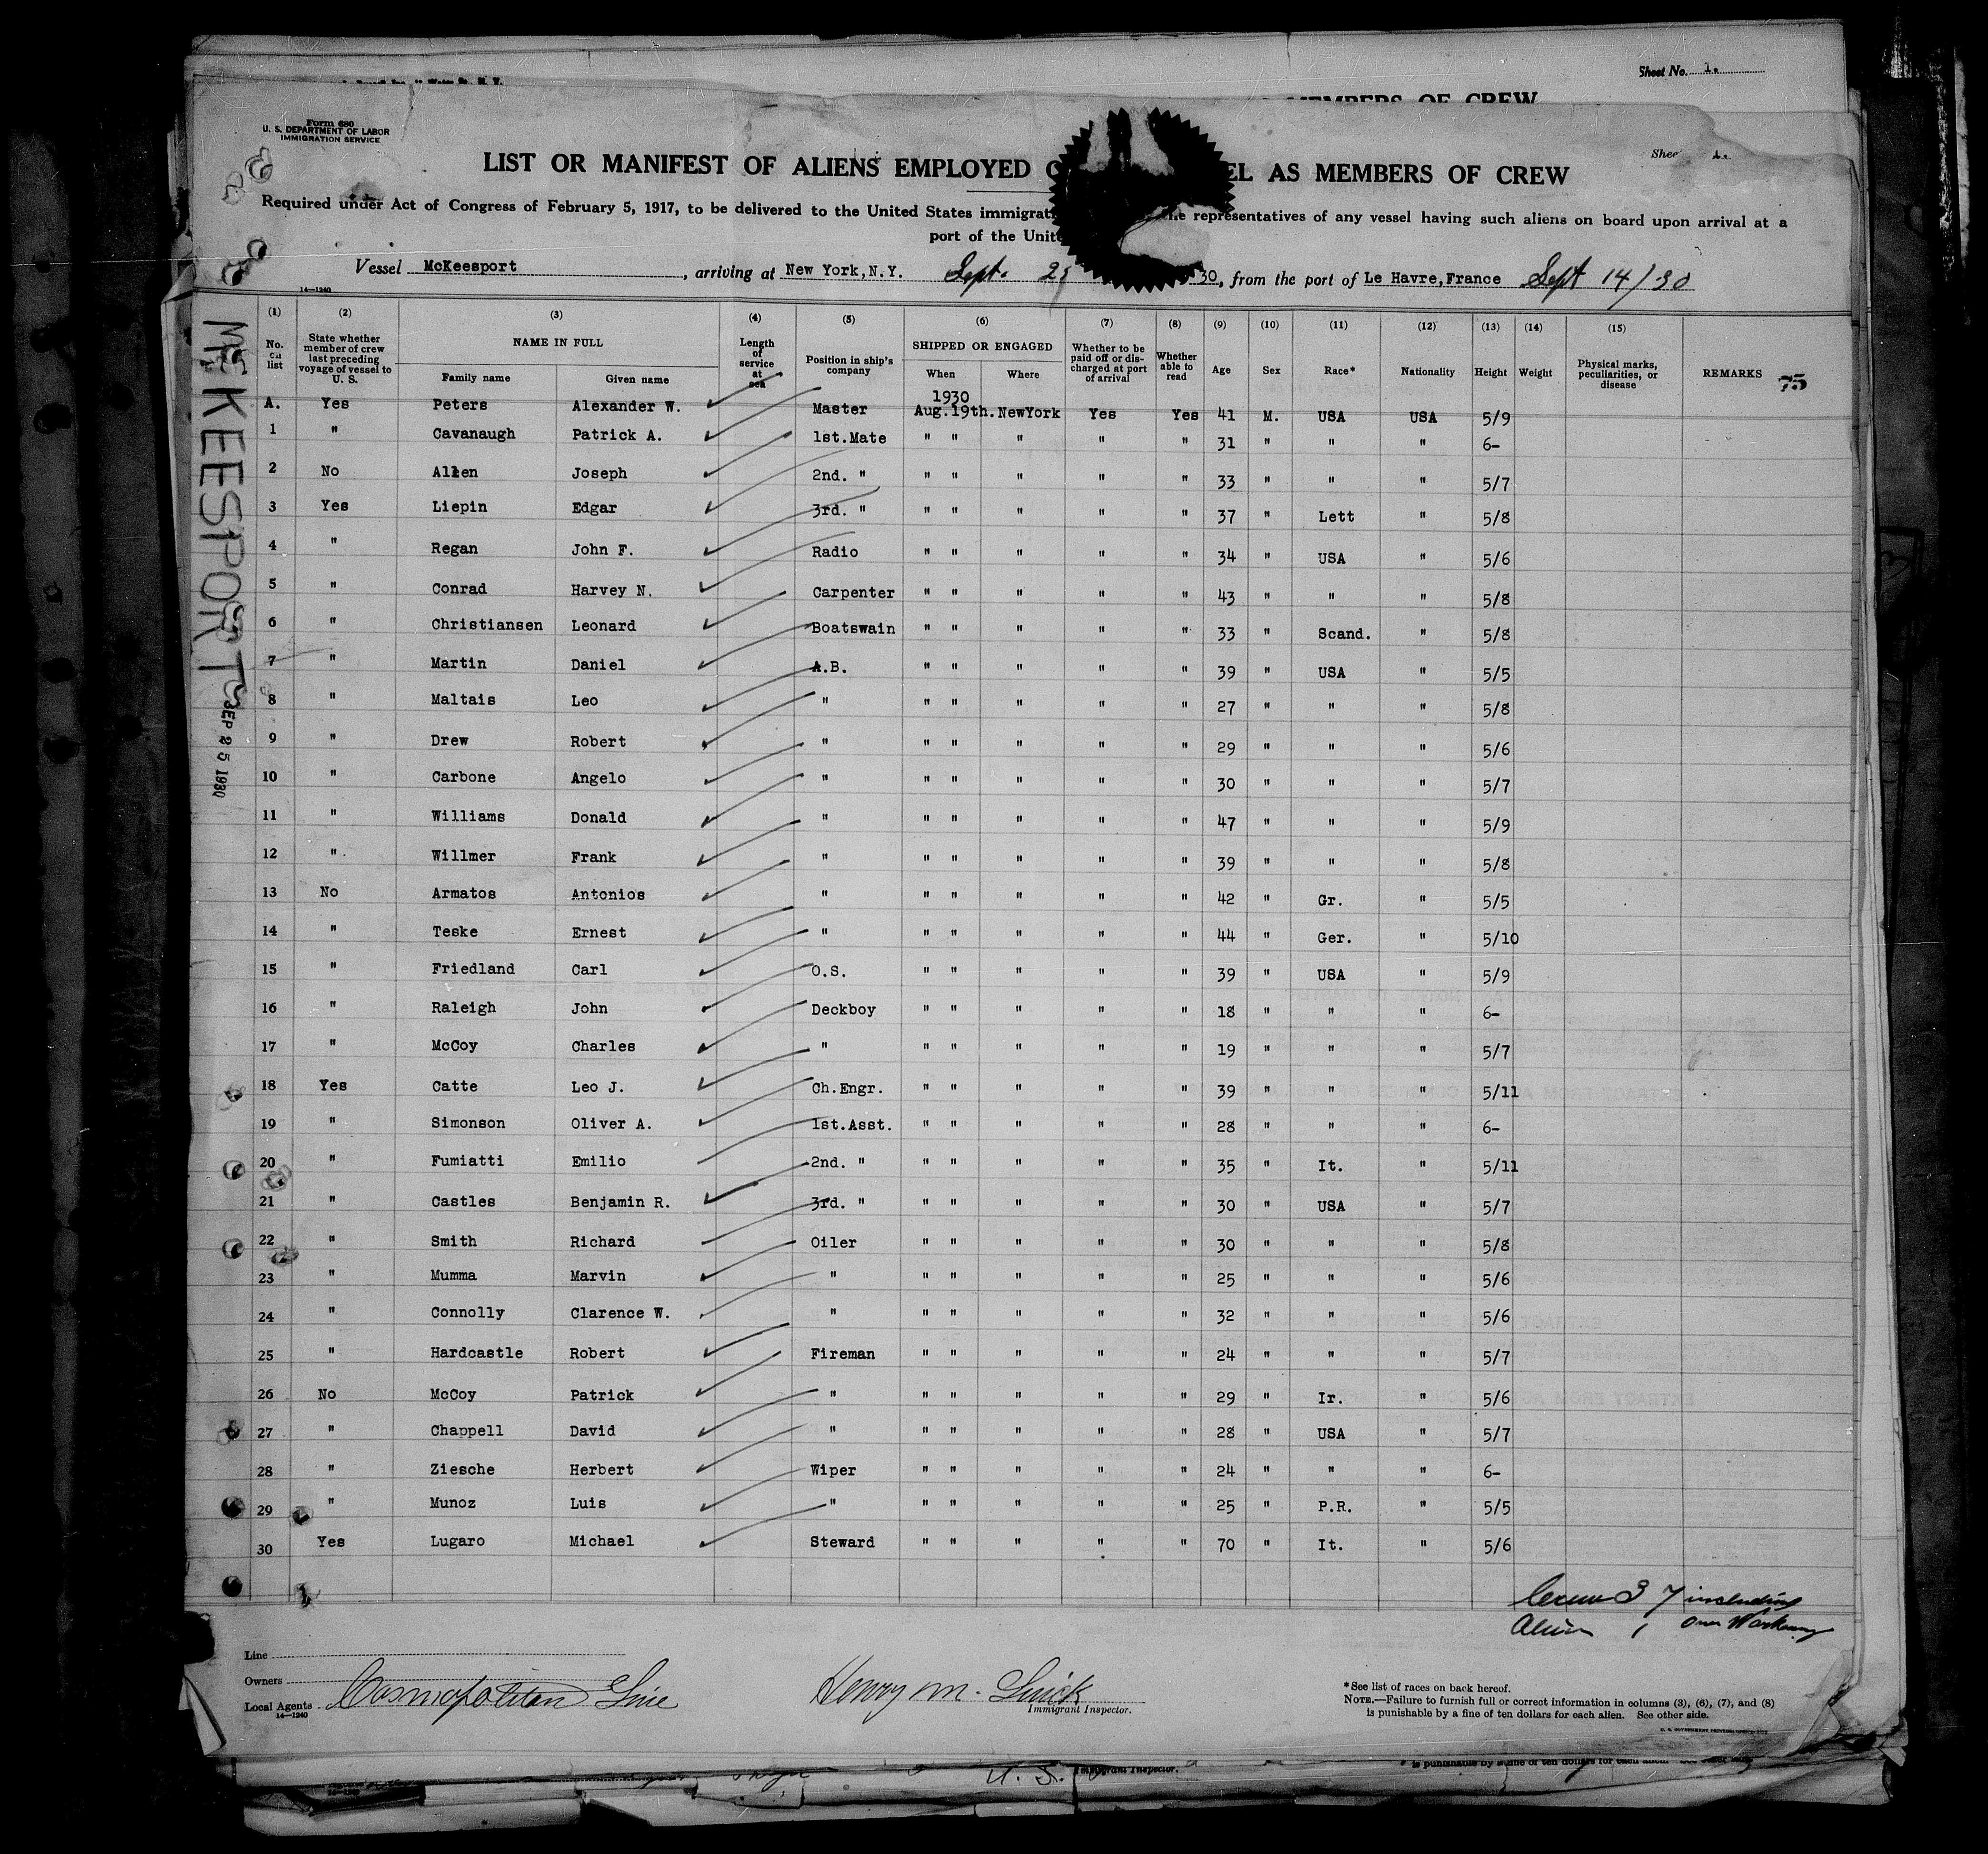 Sheet No. 1.
MEMBERS OF CREW
Form 680
U. S. DEPARTMENT OF LABOR
IMMIGRATION SERVICE
Shee 1.
LIST OR MANIFEST OF ALIENS EMPLOYED O EL AS MEMBERS OF CREW
Required under Act of Congress of February 5, 1917, to be delivered to the United States immigrati he representatives of any vessel having such aliens on board upon arrival at a
port of the Unite
Vessel McKeesport, arriving at New York,N.Y. Sept. 25 30, from the port of Le Havre,France Sept 14/30
14—1240
(1) (2) (3) (4) (5) (6) (7) (8) (9) (10) (11) (12) (13) (14) (15)
No. on list
State whether member of crew last preceding voyage of vessel to U. S.
NAME IN FULL
Family name Given name
Length of service at sea
Position in ship's company
SHIPPED OR ENGAGED
When Where
Whether to be paid off or discharged at port of arrival
Whether able to read
Age Sex Race* Nationality Height Weight
Physical marks, peculiarities, or disease
REMARKS 75
1930
A. Yes Peters Alexander W. Master Aug.19th. NewYork Yes Yes 41 M. USA USA 5/9
1 " Cavanaugh Patrick A. 1st.Mate " " " " " 31 " " " 6-
2 No Allen Joseph 2nd. " " " " " " 33 " " " 5/7
3 Yes Liepin Edgar 3rd. " " " " " " 37 " Lett " 5/8
4 " Regan John F. Radio " " " " " 34 " USA " 5/6
5 " Conrad Harvey N. Carpenter " " " " " 43 " " " 5/8
6 " Christiansen Leonard Boatswain " " " " " 33 " Scand. " 5/8
7 " Martin Daniel A.B. " " " " " 39 " USA " 5/5
8 " Maltais Leo " " " " " " 27 " " " 5/8
9 " Drew Robert " " " " " " 29 " " " 5/6
10 " Carbone Angelo " " " " " " 30 " " " 5/7
11 " Williams Donald " " " " " " 47 " " " 5/9
12 " Willmer Frank " " " " " " 39 " " " 5/8
13 No Armatos Antonios " " " " " " 42 " Gr. " 5/5
14 " Teske Ernest " " " " " " 44 " Ger. " 5/10
15 " Friedland Carl O.S. " " " " " 39 " USA " 5/9
16 " Raleigh John Deckboy " " " " " 18 " " " 6-
17 " McCoy Charles " " " " " " 19 " " " 5/7
18 Yes Catte Leo J. Ch.Engr. " " " " " 39 " " " 5/11
19 " Simonson Oliver A. 1st.Asst. " " " " " 28 " " " 6-
20 " Fumiatti Emilio 2nd. " " " " " " 35 " It. " 5/11
21 " Castles Benjamin R. 3rd. " " " " " " 30 " USA " 5/7
22 " Smith Richard Oiler " " " " " 30 " " " 5/8
23 " Mumma Marvin " " " " " " 25 " " " 5/6
24 " Connolly Clarence W. " " " " " " 32 " " " 5/6
25 " Hardcastle Robert Fireman " " " " " 24 " " " 5/7
26 No McCoy Patrick " " " " " " 29 " Ir. " 5/6
27 " Chappell David " " " " " " 28 " USA " 5/7
28 " Ziesche Herbert Wiper " " " " " 24 " " " 6-
29 " Munoz Luis " " " " " " 25 " P.R. " 5/5
30 Yes Lugaro Michael Steward " " " " " 70 " It. " 5/6
McKEESPORT
SEP 25 1930
Crew 37 including
Alien 1 one Workaway
Line
Owners
Local Agents Cosmopolitan Line
14—1240
Henry M.
Immigrant Inspector.
*See list of races on back hereof.
NOTE.—Failure to furnish full or correct information in columns (3), (6), (7), and (8)
is punishable by a fine of ten dollars for each alien. See other side.
U. S. GOVERNMENT PRINTING OFFICE
U. S.
Immigrant Inspector.
is punishable by a fine of ten dollars for each alien